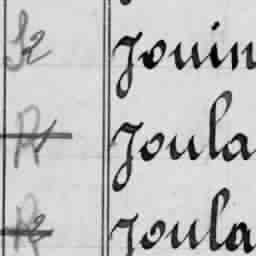 R2 Jouin
R1 Joula
R2 Joula